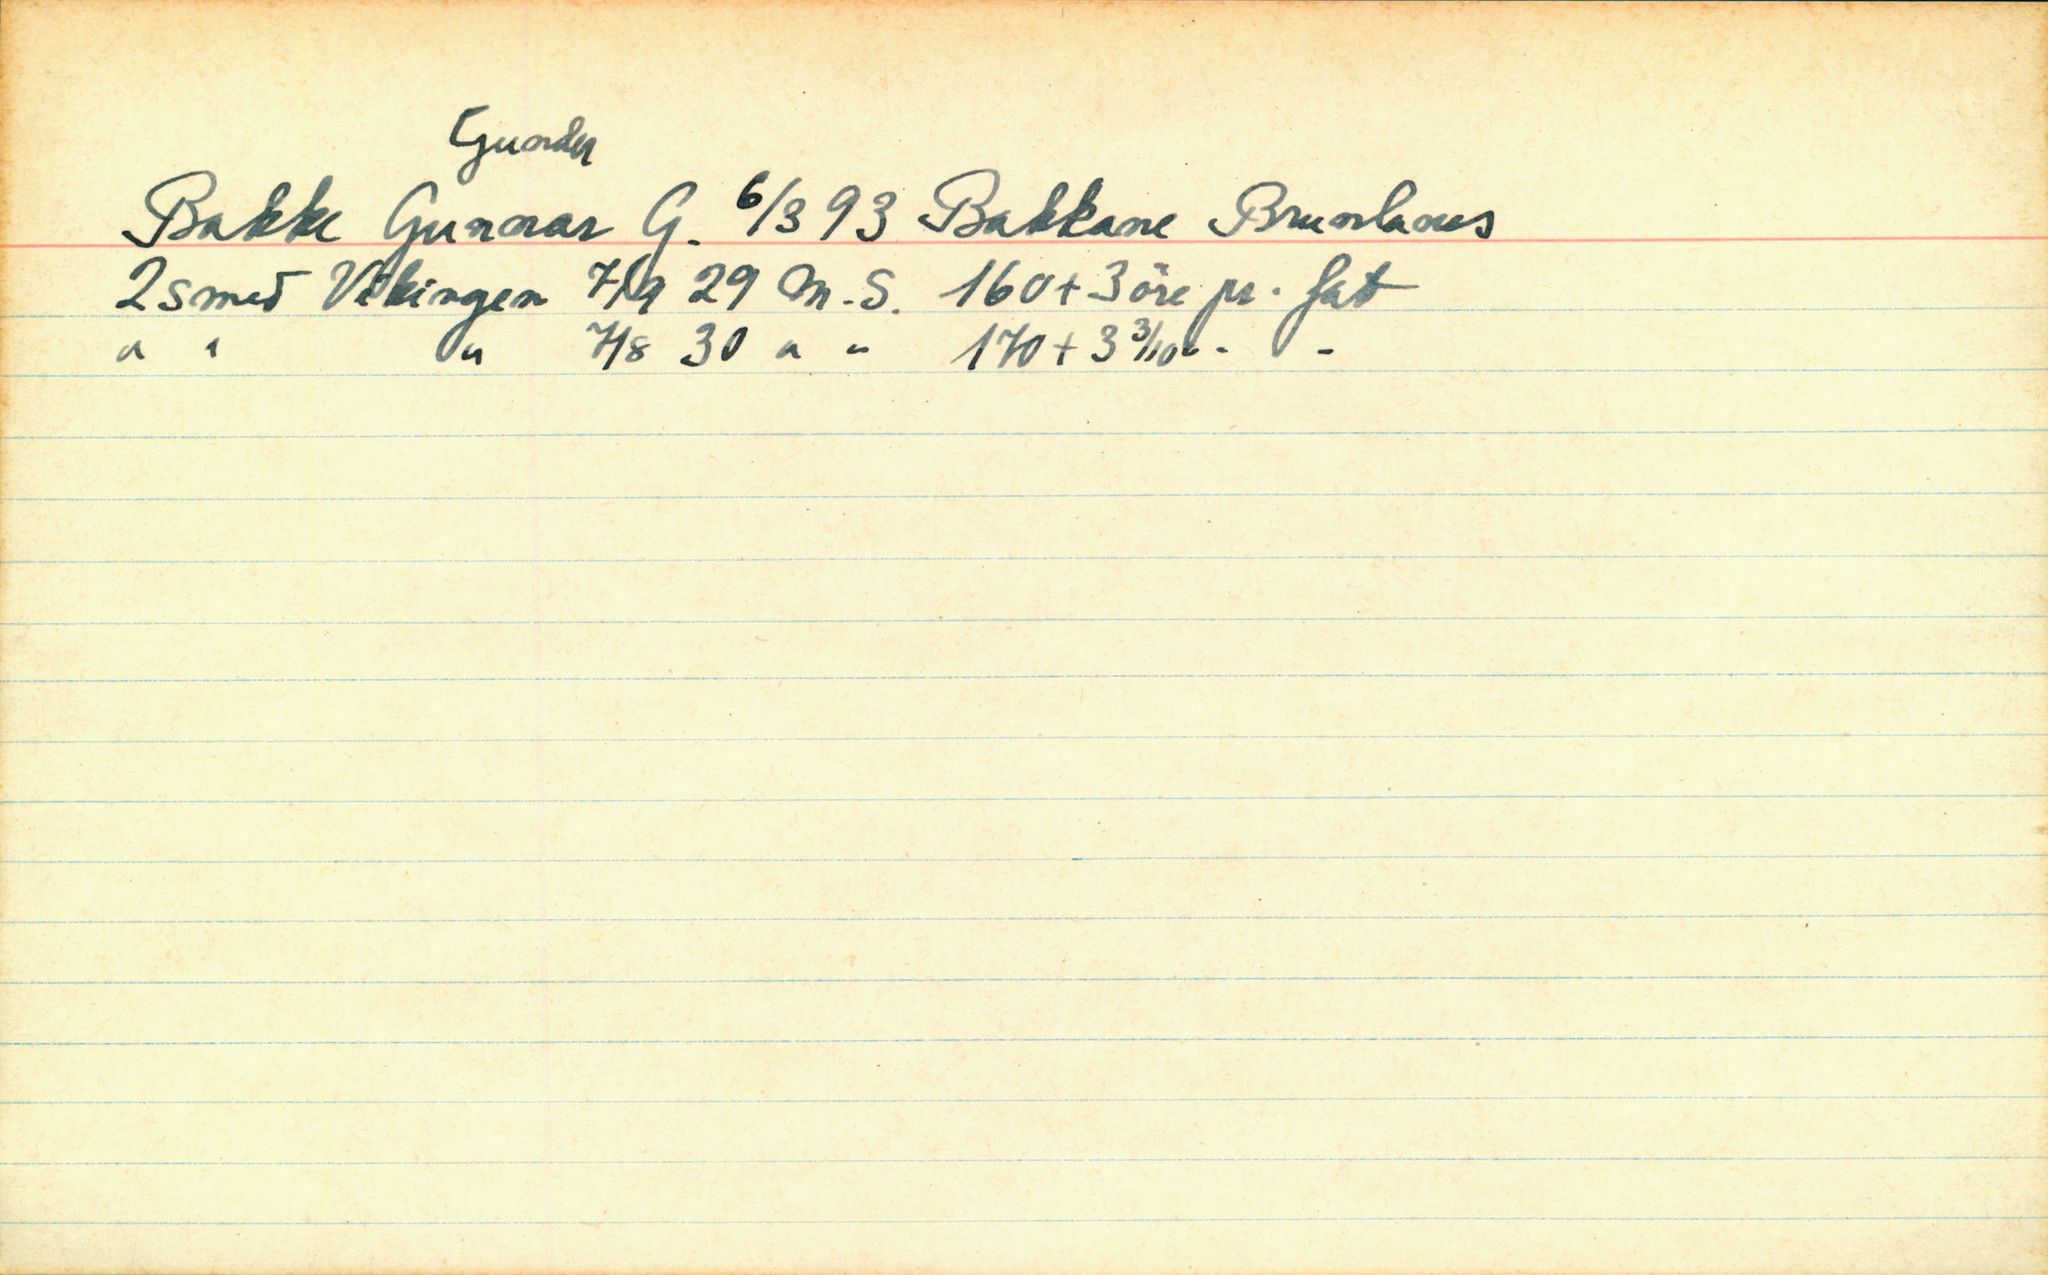 Gunder
Bakke Gunnar G. 6/3 93 Bakkane Brunlanes
2 smed Vikingen 7/9 29 M.S. 160 + 3 öre pr. fat
" " " 7/8 30 " " 170 + 3 3/10 " " "